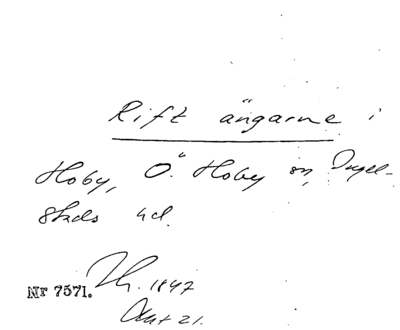 Rift ängarne i
Hoby, Ö. Hoby sn, Ingel-
stads hd.
Nr 7571. 1847
21.